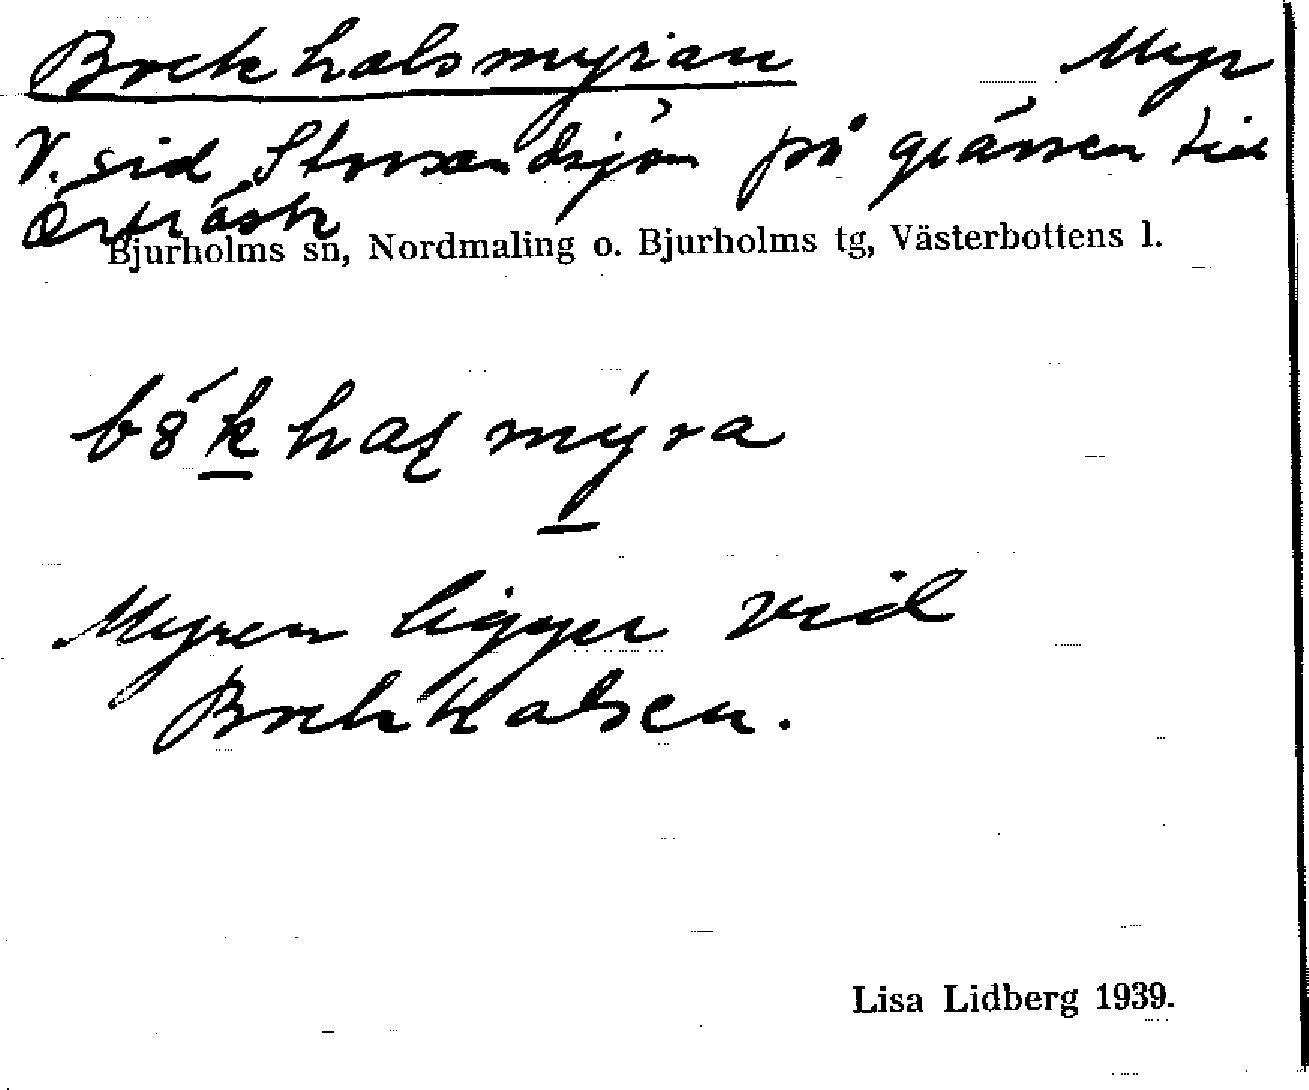 Bockhalsmyran Myr
V. sid Storsandsjön på gränsen till
Örträsk
Bjurholms sn, Nordmaling o. Bjurholms tg, Västerbottens l.
Myren ligger vid
Bockhalsen.
Lisa Lidberg 1939.